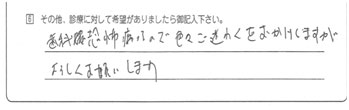 6 その他、診療に対して希望がありましたら御記入下さい。
歯科恐怖病なので色々ごめいわくをおかけしますが
よろしくお願いします